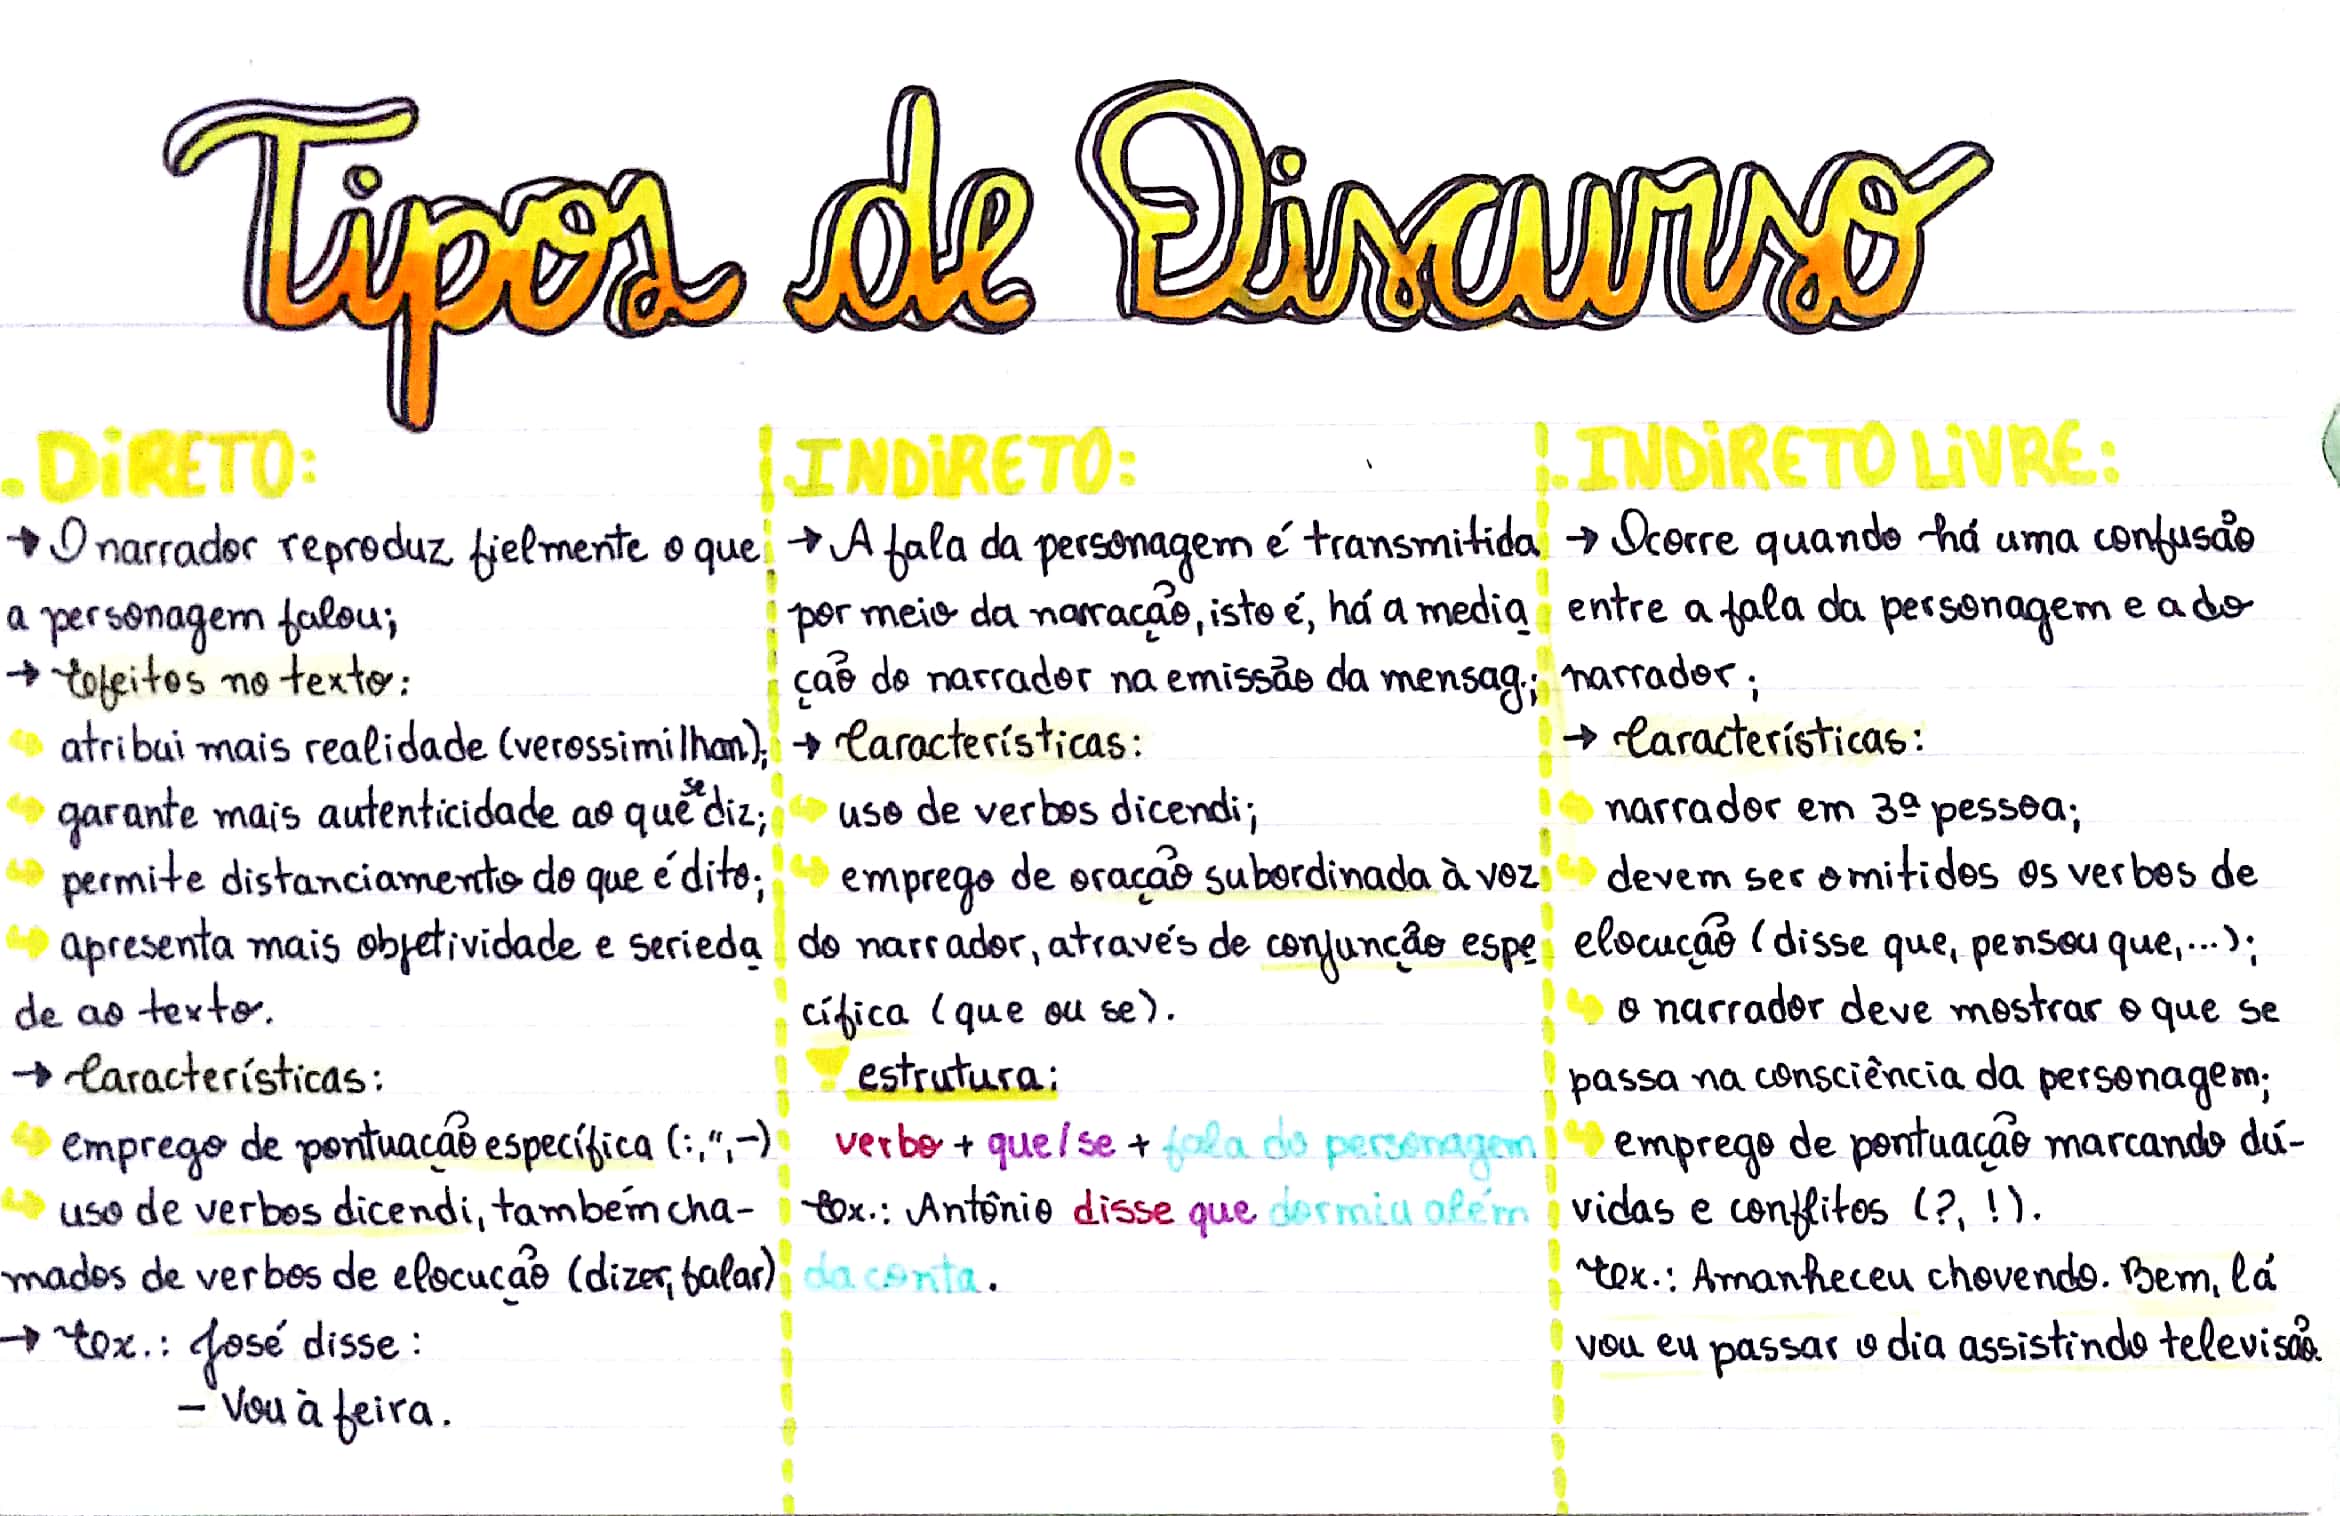 Tipos de Discurso
. DIRETO:
→ O narrador reproduz fielmente o que
a personagem falou;
→ Efeitos no texto:
↪ atribui mais realidade (verossimilhan);
↪ garante mais autenticidade ao que se diz;
↪ permite distanciamento do que é dito;
↪ apresenta mais objetividade e serieda
de ao texto.
→ Características:
↪ emprego de pontuação específica (:, ", –)
↪ uso de verbos dicendi, também cha-
mados de verbos de elocução (dizer, falar)
→ Ex.: José disse:
– Vou à feira.
. INDIRETO:
→ A fala da personagem é transmitida
por meio da narração, isto é, há a media
ção do narrador na emissão da mensag.;
→ Características:
↪ uso de verbos dicendi;
↪ emprego de oração subordinada à voz
do narrador, através de conjunção espe
cífica (que ou se).
estrutura:
verbo + que/se + fala do personagem
Ex.: Antônio disse que dormiu além
da conta.
. INDIRETO LIVRE:
→ Ocorre quando há uma confusão
entre a fala da personagem e a do
narrador;
→ Características:
↪ narrador em 3ª pessoa;
↪ devem ser omitidos os verbos de
elocução (disse que, pensou que,...);
↪ o narrador deve mostrar o que se
passa na consciência da personagem;
↪ emprego de pontuação marcando dú-
vidas e conflitos (?, !).
Ex.: Amanheceu chovendo. Bem, lá
vou eu passar o dia assistindo televisão.